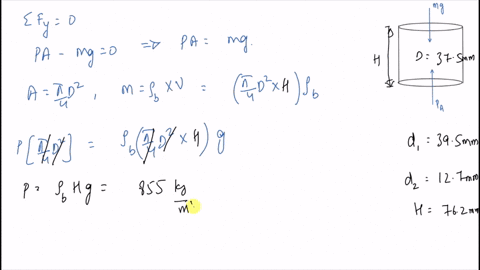 ΣFy = 0
PA - mg = 0 ⟹ PA = mg.
A = π/4 D², m = ρb × V = (π/4 D² × H) ρb
P[π/4 D²] = ρb (π/4 D² × H) g
P = ρb H g = 855 kg/m³
mg
H
D = 37.5mm
PA
d1 = 39.5mm
d2 = 12.7mm
H = 76.2mm